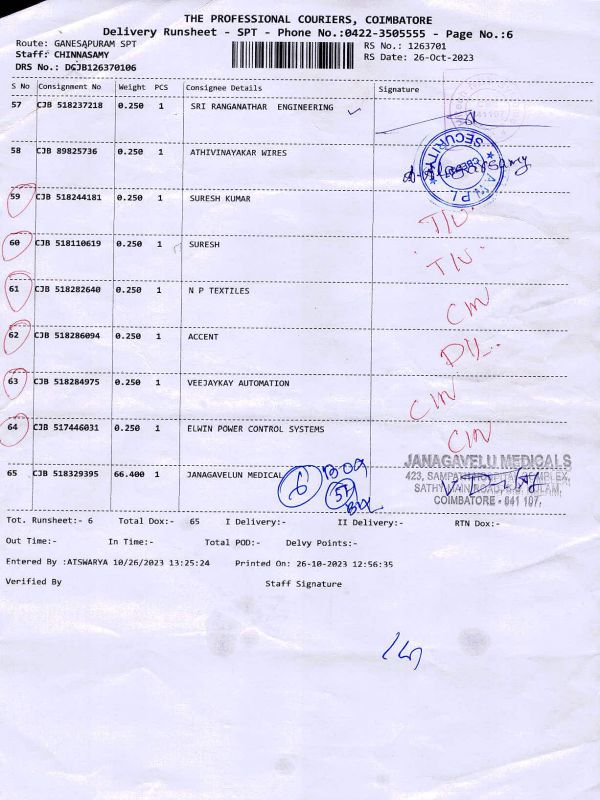 THE PROFESSIONAL COURIERS, COIMBATORE
Delivery Runsheet - SPT - Phone No.:0422-3505555 - Page No.:6
Route: GANESAPURAM SPT
RS No.: 1263701
Staff: CHINNASAMY
RS Date: 26-Oct-2023
DRS No.: DCJB126370106
S No Consignment No Weight PCS Consignee Details Signature
57 CJB 518237218 0.250 1 SRI RANGANATHAR ENGINEERING
SECURITY
A.N.P.L
58 CJB 89825736 0.250 1 ATHIVINAYAKAR WIRES
59 CJB 518244181 0.250 1 SURESH KUMAR
T/U
60 CJB 518110619 0.250 1 SURESH
T/U
61 CJB 518282640 0.250 1 N P TEXTILES
CIN
62 CJB 518286094 0.250 1 ACCENT
DIL
63 CJB 518284975 0.250 1 VEEJAYKAY AUTOMATION
CIN
64 CJB 517446031 0.250 1 ELWIN POWER CONTROL SYSTEMS
CIN
65 CJB 518329395 66.400 1 JANAGAVELUN MEDICAL
6
JANAGAVELU MEDICALS
423, SAMPATH HOSPITAL COMPLEX,
SATHY MAIN ROAD, S.S. KULAM,
COIMBATORE - 641 107.
Tot. Runsheet:- 6 Total Dox:- 65 I Delivery:- II Delivery:- RTN Dox:-
Out Time:- In Time:- Total POD:- Delvy Points:-
Entered By :AISWARYA 10/26/2023 13:25:24 Printed On: 26-10-2023 12:56:35
Verified By Staff Signature